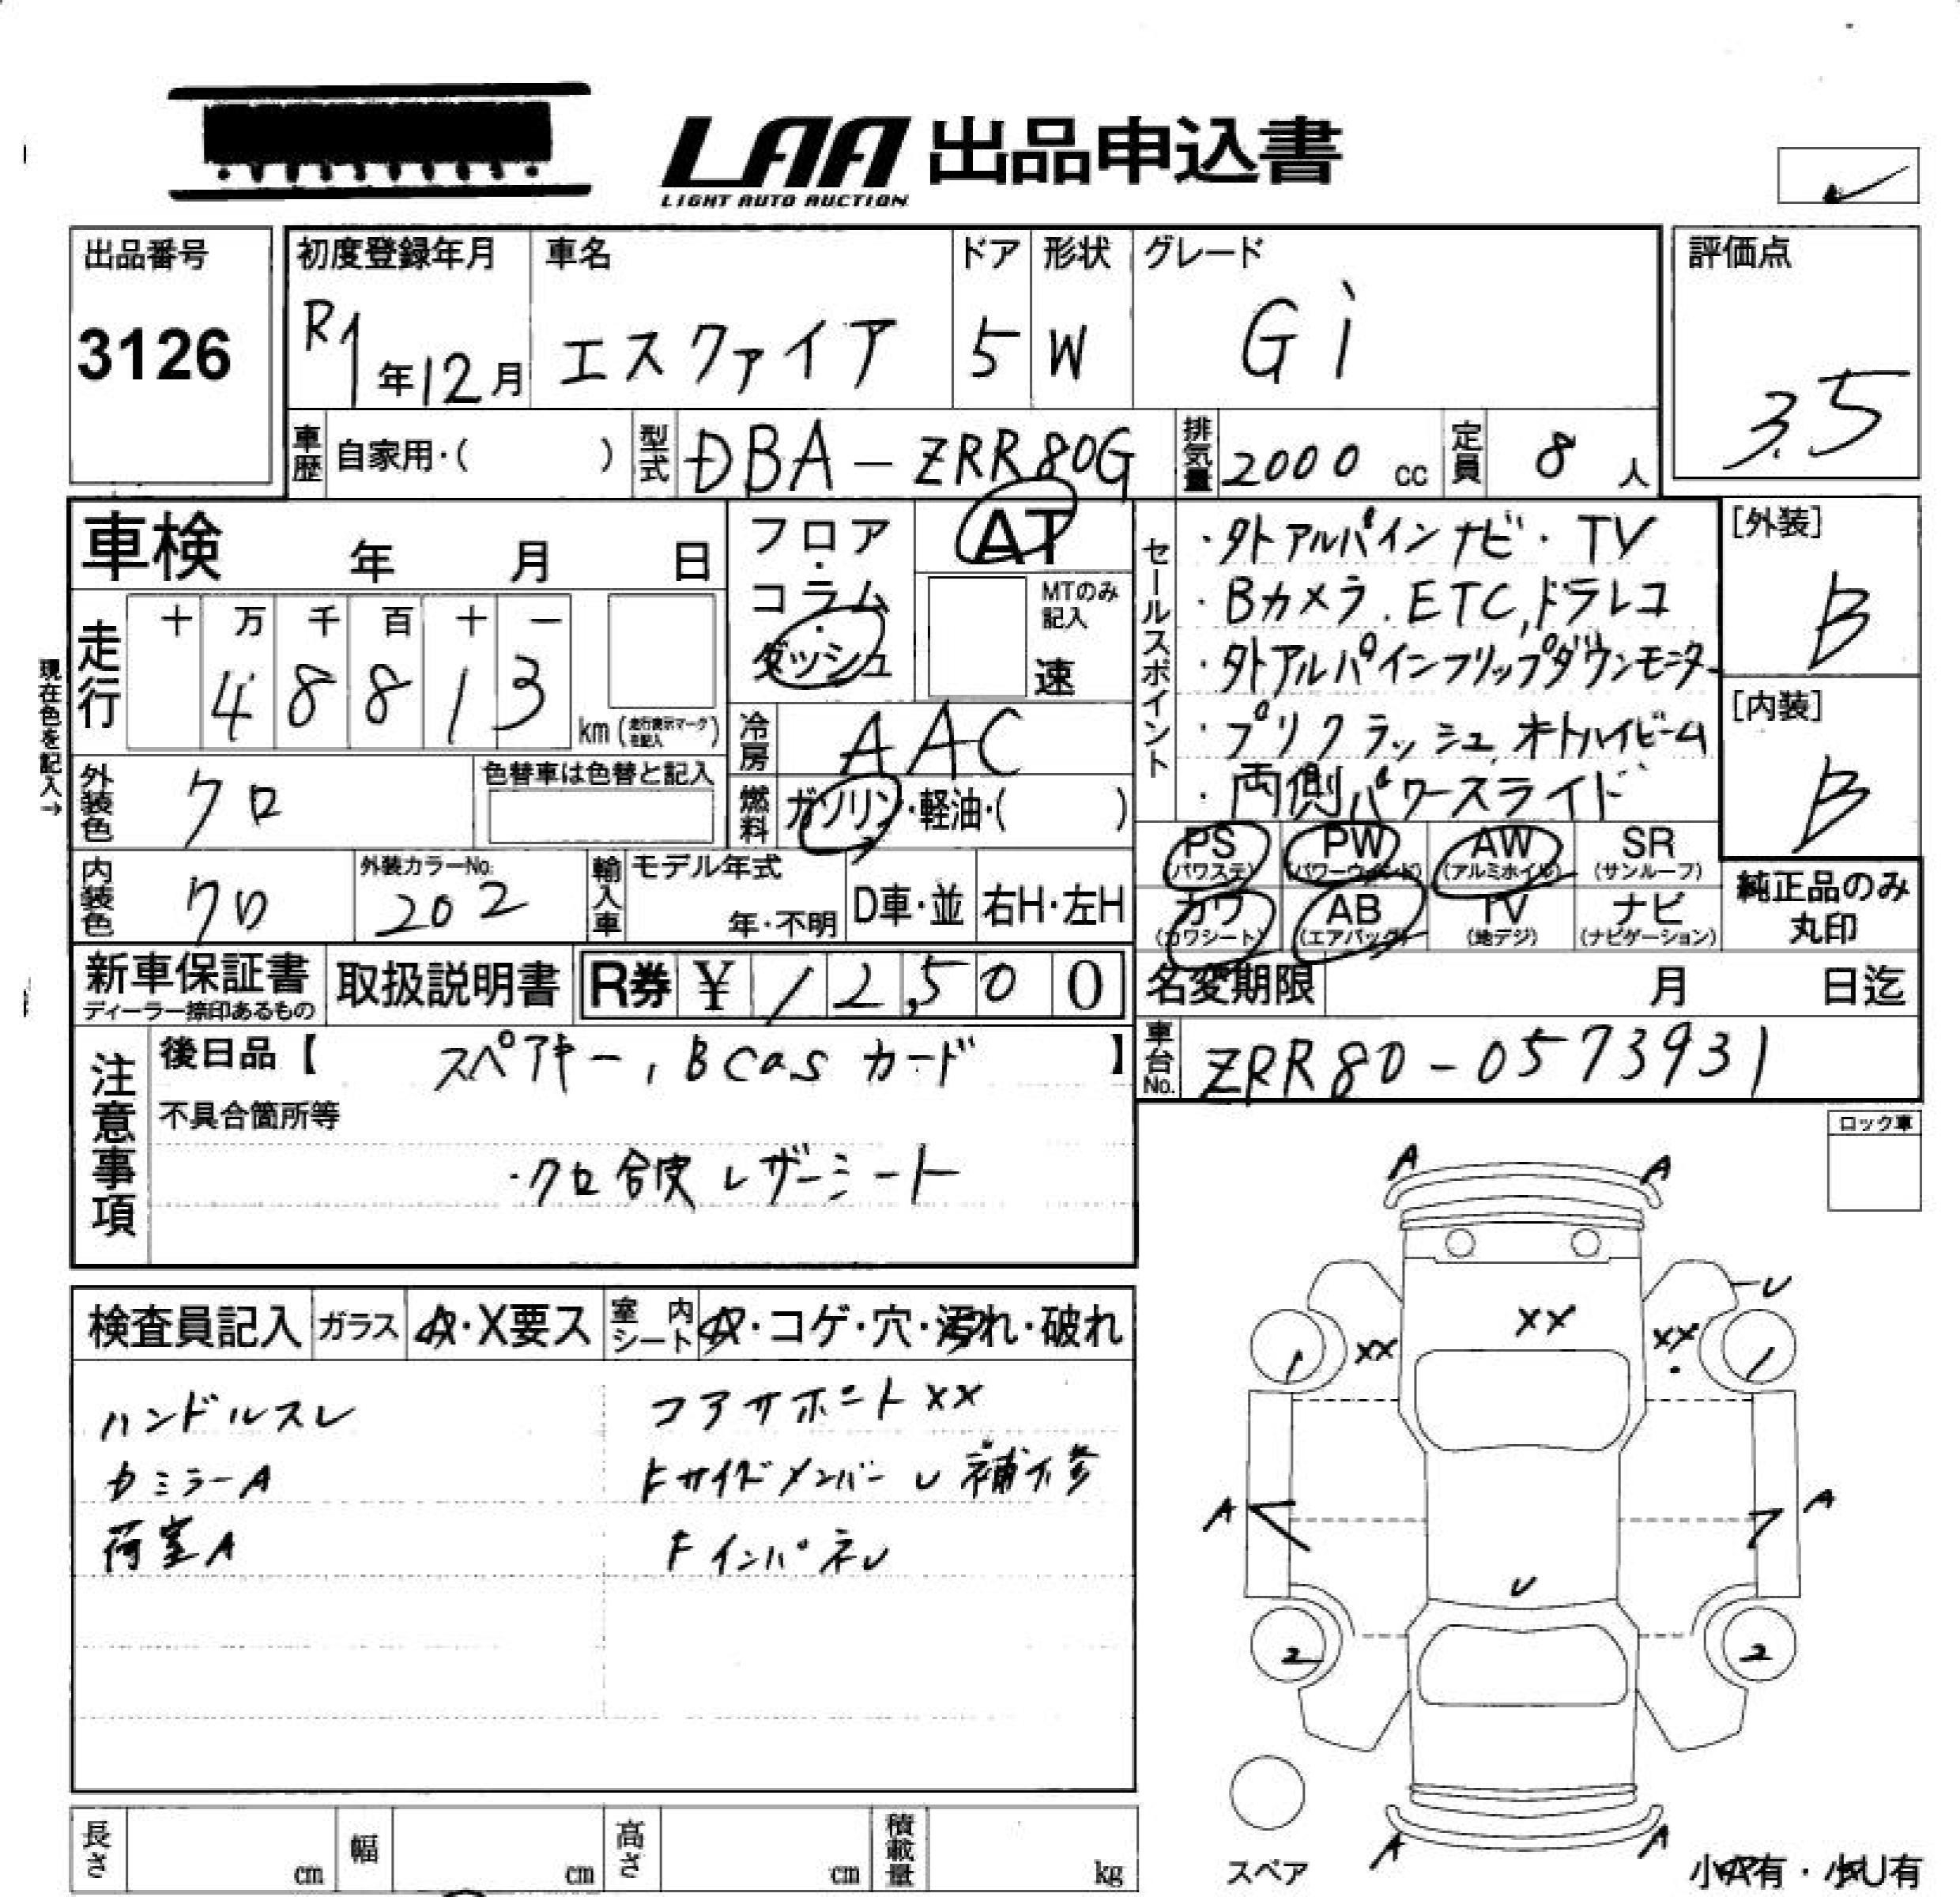 LAA 出品申込書
LIGHT AUTO AUCTION
出品番号
3126
初度登録年月
R1年12月
車名
エスクァイア
ドア
5
形状
W
グレード
Gi
評価点
3.5
車歴
自家用・( )
型式
DBA-ZRR80G
排気量
2000 cc
定員
8 人
車検 年 月 日
フロア・コラム・ダッシュ
AT
MTのみ記入
速
セールスポイント
・外アルパインナビ・TV
・Bカメラ.ETC,ドラレコ
・外アルパインフリップダウンモニター
・プリクラッシュ オートハイビーム
・両側パワースライド
[外装]
B
[内装]
B
現在色を記入→
走行
十 万 千 百 十 一
4 8 8 1 3
km (走行表示マークを記入)
冷房
AAC
外装色
クロ
色替車は色替と記入
燃料
ガソリン・軽油・( )
PS (パワステ)
PW (パワーウィンド)
AW (アルミホイル)
SR (サンルーフ)
カワ (カワシート)
AB (エアバッグ)
TV (地デジ)
ナビ (ナビゲーション)
純正品のみ丸印
内装色
クロ
外装カラーNo.
202
輸入車
モデル年式
年・不明
D車・並
右H・左H
新車保証書
ディーラー捺印あるもの
取扱説明書
R券 ¥ 12,500
名変期限 月 日迄
車台No.
ZRR80-0573931
注意事項
後日品【 スペアキー, Bcas カード 】
不具合箇所等
・クロ合皮レザーシート
ロック車
検査員記入
ガラス
A・X要ス
室内シート
A・コゲ・穴・汚れ・破れ
ハンドルスレ
カミラーA
荷室A
コアサポートXX
Fサイドメンバー U 補修
FインパネU
A
A
U
XX
XX
XX
1
1
A
A
U
2
2
A
A
スペア
小A有・小U有
長さ cm
幅 cm
高さ cm
積載量 kg